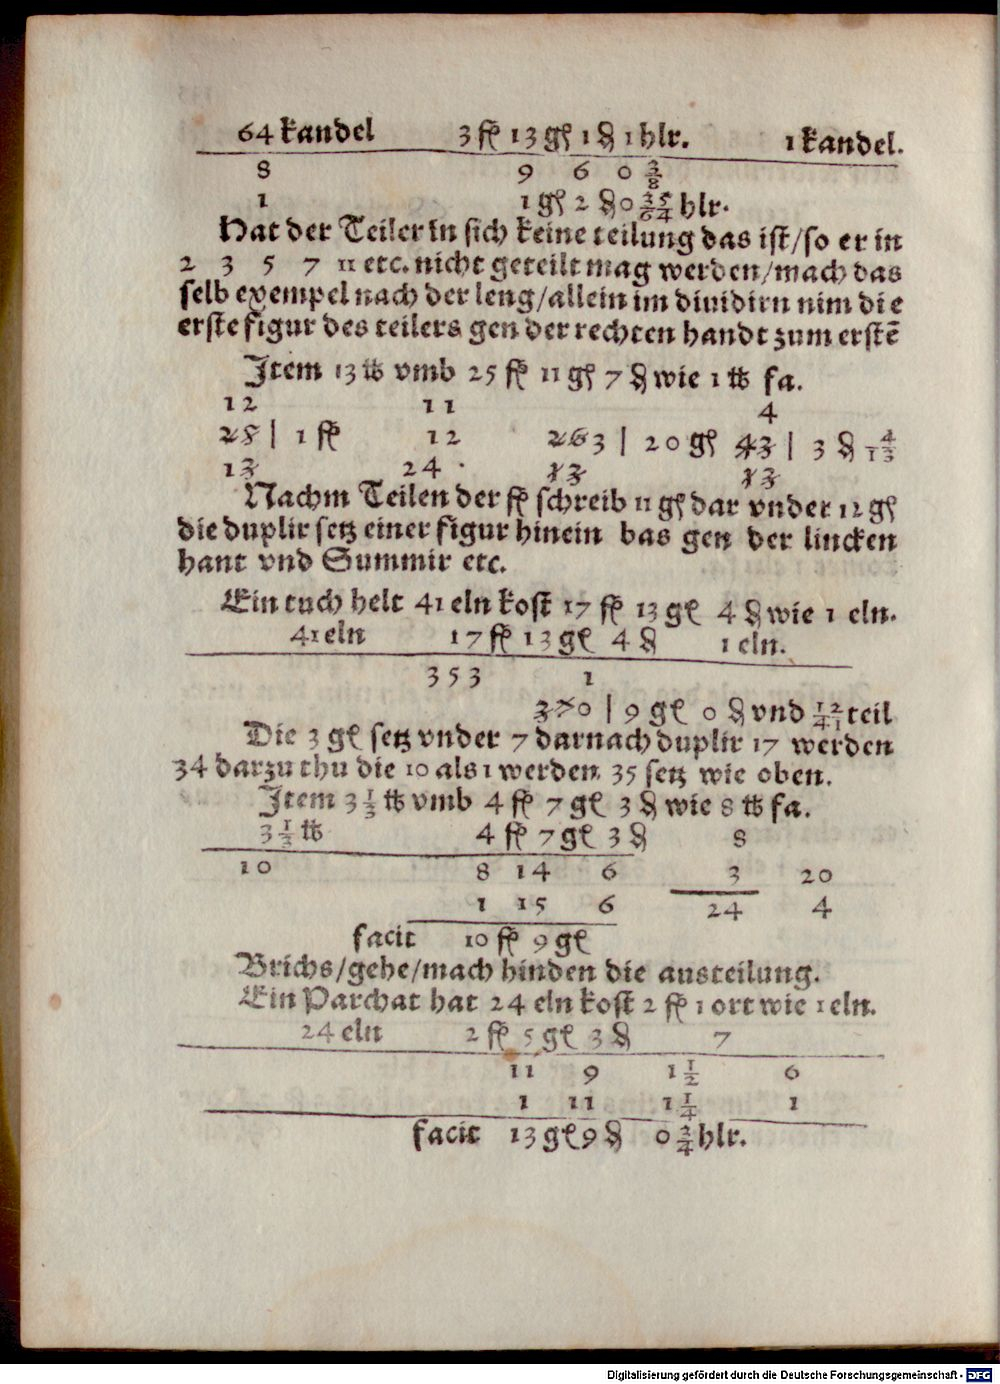 64 kandel 3 fl 13 gl 1 ₰ 1 hlr. 1 kandel.
8 9 6 0 3/8
1 1 gl 2 ₰ 0 35/64 hlr.
Hat der Teiler in sich keine teilung das ist/so er in
2 3 5 7 11 etc. nicht geteilt mag werden/mach das
selb exempel nach der leng/allein im dividirn nim die
erste figur des teilers gen der rechten handt zum erstē
Item 13 ℔ vmb 25 fl 11 gl 7 ₰ wie 1 ℔ fa.
12 11 4
28 | 1 fl 12 263 | 20 gl 43 | 3 ₰ 4/13
13 24 13 13
Nachm Teilen der fl schreib 11 gl dar vnder 12 gl
die duplir setz einer figur hinein bas gen der lincken
hant vnd Summir etc.
Ein tuch helt 41 eln kost 17 fl 13 gl 4 ₰ wie 1 eln.
41 eln 17 fl 13 gl 4 ₰ 1 eln.
353 1
370 | 9 gl 0 ₰ vnd 12/41 teil
Die 3 gl setz vnder 7 darnach duplir 17 werden
34 darzu thu die 10 als 1 werden 35 setz wie oben.
Item 3 1/3 ℔ vmb 4 fl 7 gl 3 ₰ wie 8 ℔ fa.
3 1/3 ℔ 4 fl 7 gl 3 ₰ 8
10 8 14 6 3 20
1 15 6 24 4
facit 10 fl 9 gl
Brichs/gehe/mach hinden die austeilung.
Ein Parchat hat 24 eln kost 2 fl 1 ort wie 1 eln.
24 eln 2 fl 5 gl 3 ₰ 7
11 9 1 1/2 6
1 11 1 1/4 1
facit 13 gl 9 ₰ 0 3/4 hlr.
Digitalisierung gefördert durch die Deutsche Forschungsgemeinschaft - DFG